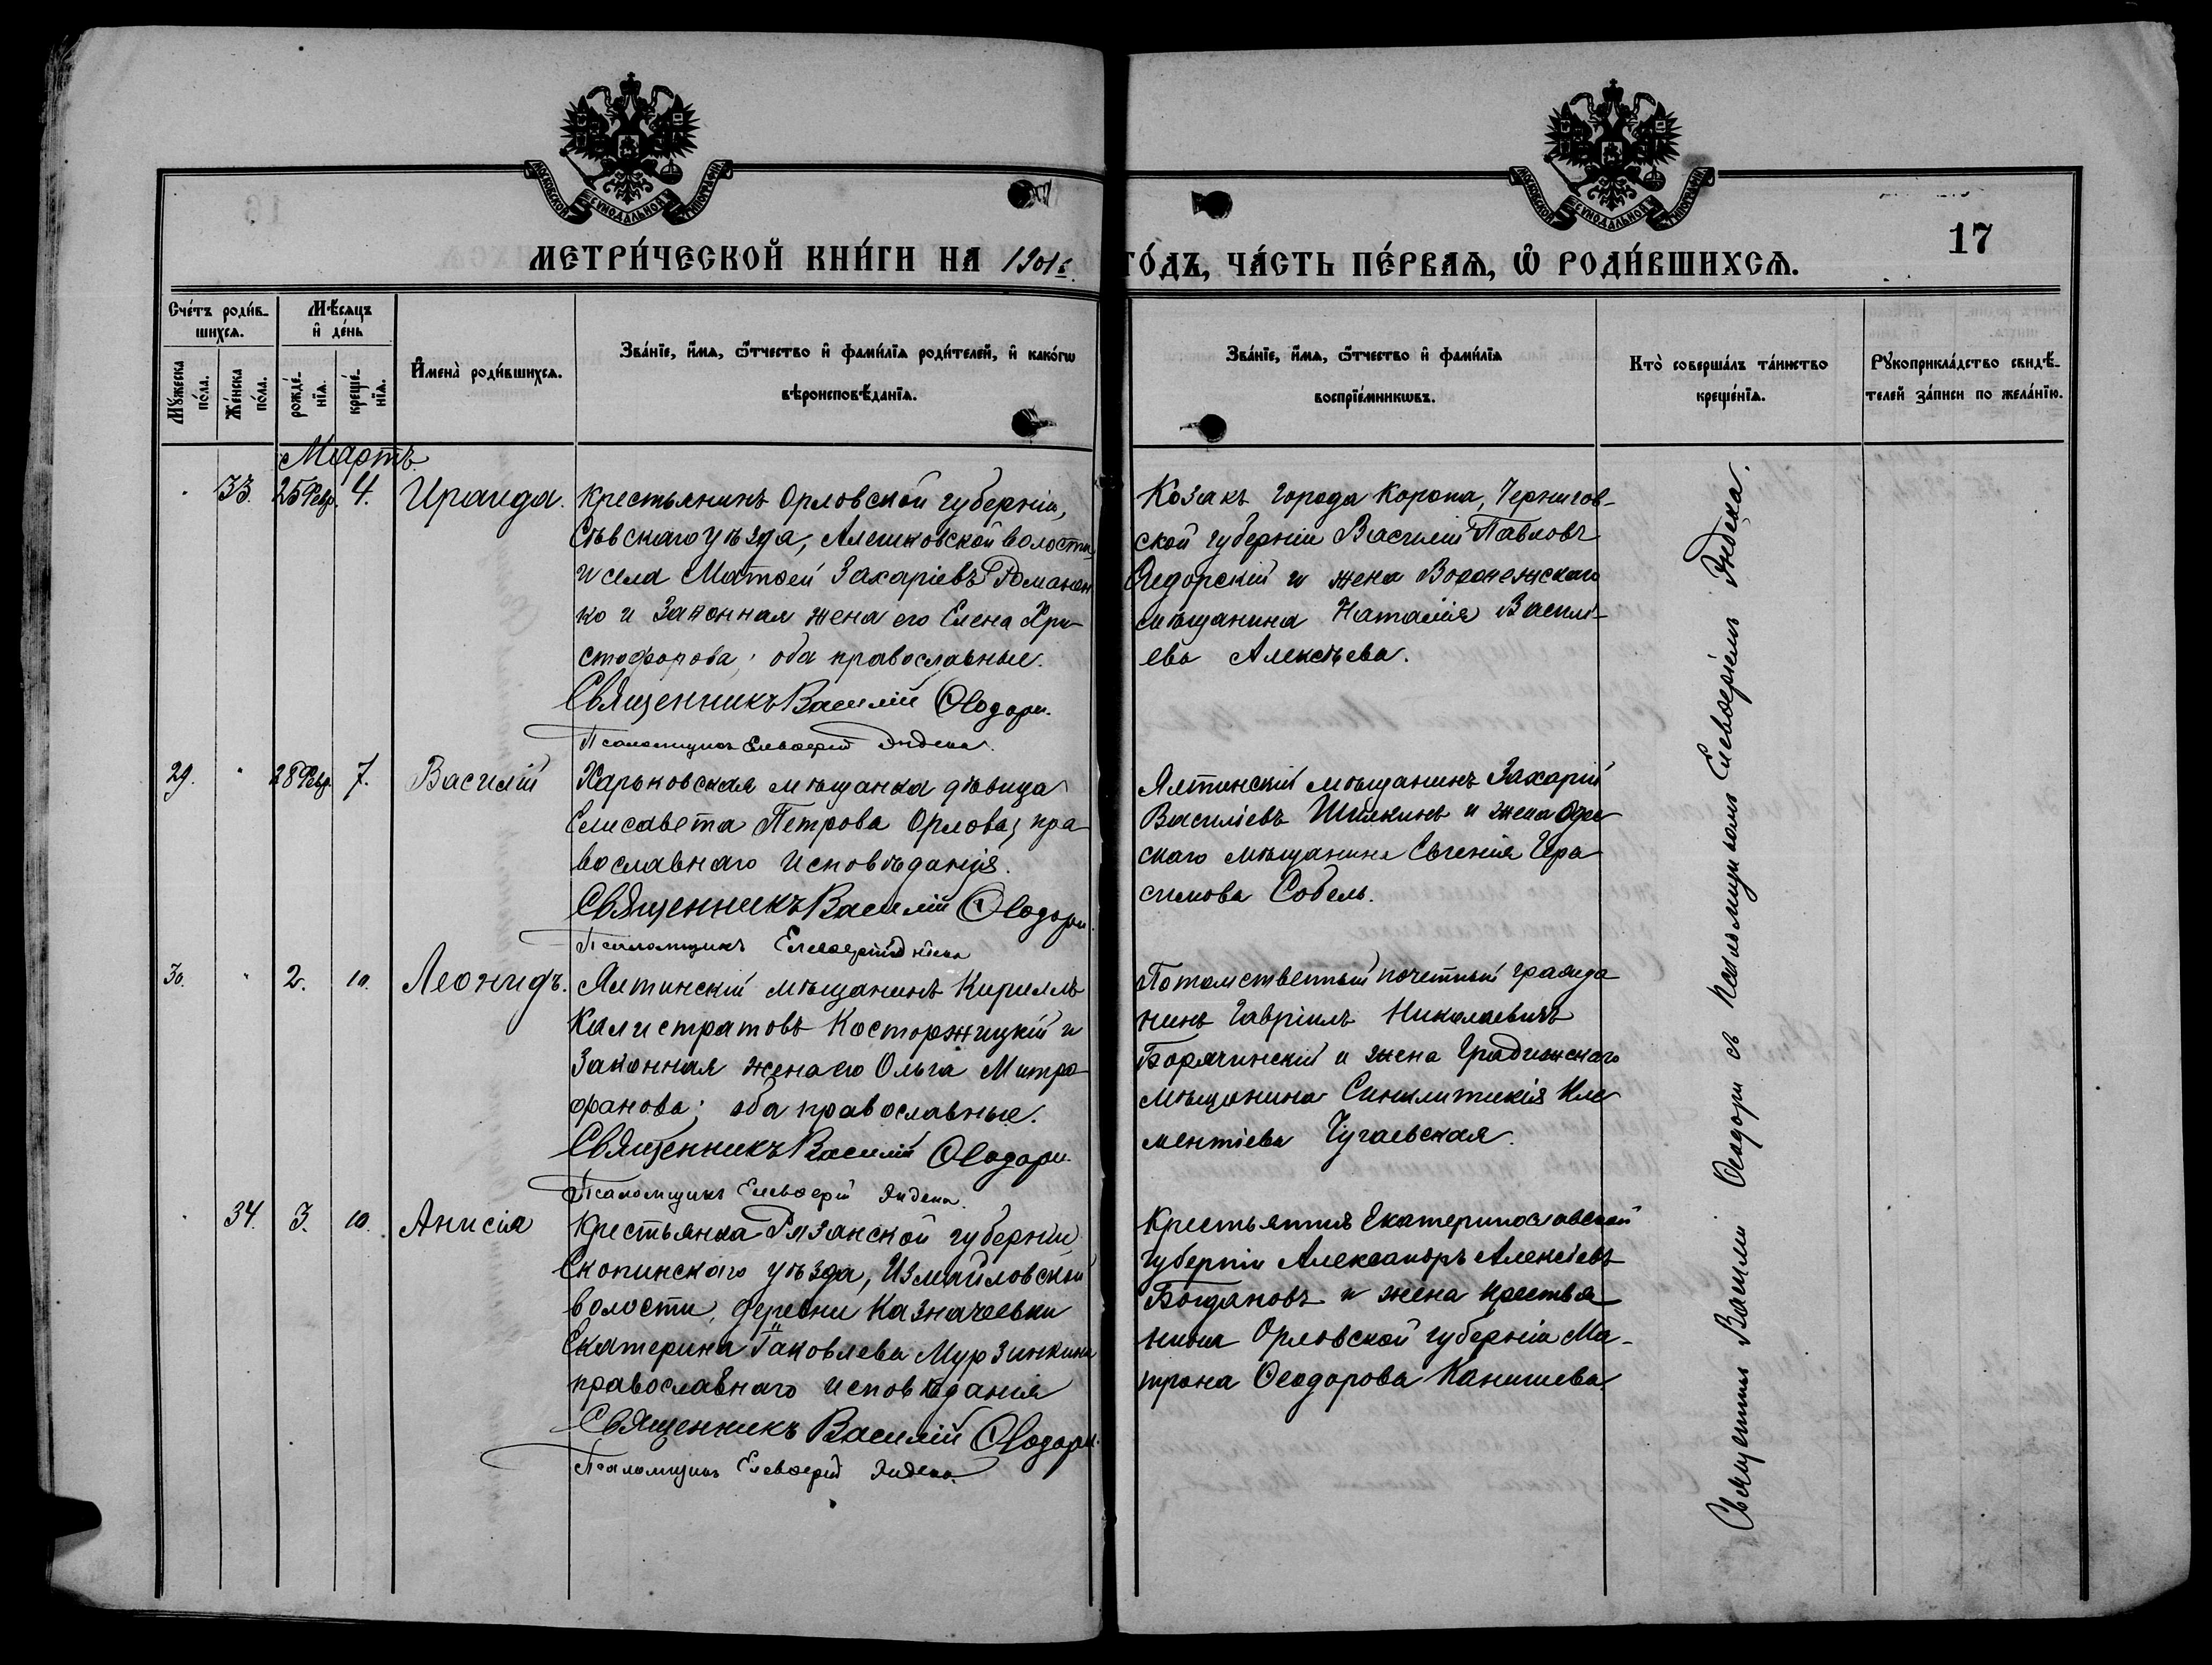 МОСКОВСКОЙ СѴНОДАЛЬНОЙ ТИПОГРАФІИ.
МОСКОВСКОЙ СѴНОДАЛЬНОЙ ТИПОГРАФІИ.
МЕТРИ́ЧЕСКОЙ КНИ́ГИ НА 1901
ГО́ДЪ, ЧА́СТЬ ПЕ́РВАѦ, Ѡ РОДИ́ВШИХСѦ.
17
Сче́тъ роди́в-
шихсѧ.
Мꙋжеска по́ла.
Же́нска по́ла.
Мѣ́сѧцъ
и҆ де́нь
рожде́-
нїѧ.
креще́-
нїѧ.
И҆мена̀ роди́вшихсѧ.
Зва́нїе, и҆́мѧ, ѻ҆́тчество и҆ фами́лїѧ роди́телей, и҆ како́гѡ
вѣроисповѣ́данїѧ.
Зва́нїе, и҆́мѧ, ѻ҆́тчество и҆ фами́лїѧ
воспрїе́мникѡвъ.
Кто̀ соверша́лъ та́инство
креще́нїѧ.
Рꙋкоприкла́дство свидѣ́-
телей за́писи по жела́нїю.
Мартъ
33. 25 Февр. 4. Ираида.
Крестьянинъ Орловской губерніи,
Сѣвскаго уѣзда, Алешковской волости
и села Матѳей Захаріевъ Романен
ко и законная жена его Елена Хри-
стофорова; оба православные.
Священникъ Василій Ѳеодори.
Псаломщикъ Елевѳерій Эндека.
Козакъ города Коропа, Чернигов-
ской губерніи Василій Павловъ
Ядорскій и жена Воронежскаго
мѣщанина Наталія Василі-
ева Алексѣева.
29. 28 Февр. 7. Василій
Харьковская мѣщанка дѣвица
Елисавета Петрова Орлова, пра
вославнаго исповѣданія.
Священникъ Василій Ѳеодори.
Псаломщикъ Елевѳерій Эндека
Ялтинскій мѣщанинъ Захарій
Василіевъ Шилкинъ и жена Одес
скаго мѣщанина Евгенія Гера
симова Собель.
30. 2. 10. Леонидъ.
Ялтинскій мѣщанинъ Кириллъ
Калистратовъ Косторжицкій и
законная жена его Ольга Митро
фанова; оба православные.
Священникъ Василій Ѳеодори.
Псаломщикъ Елевѳерій Эндека.
Потомственный почетный гражда
нинъ Гавріилъ Николаевичъ
Борячинскій и жена Градижскаго
мѣщанина Синклитикія Кле
ментіева Чугаевская.
34. 3. 10. Анисія
Крестьянка Рязанской губерніи,
Скопинскаго уѣзда, Измайловской
волости, деревни Казначеевки
Екатерина Іаковлева Мурзинкина
православнаго исповѣданія
Священникъ Василій Ѳеодори.
Псаломщикъ Елевѳерій Эндека.
Крестьянинъ Екатеринославской
губерніи Александръ Алексіевъ
Богдановъ и жена крестья
нина Орловской губерніи Ма-
трона Ѳеодорова Канишева
Священникъ Василій Ѳеодори съ псаломщикомъ Елевѳеріемъ Эндека.